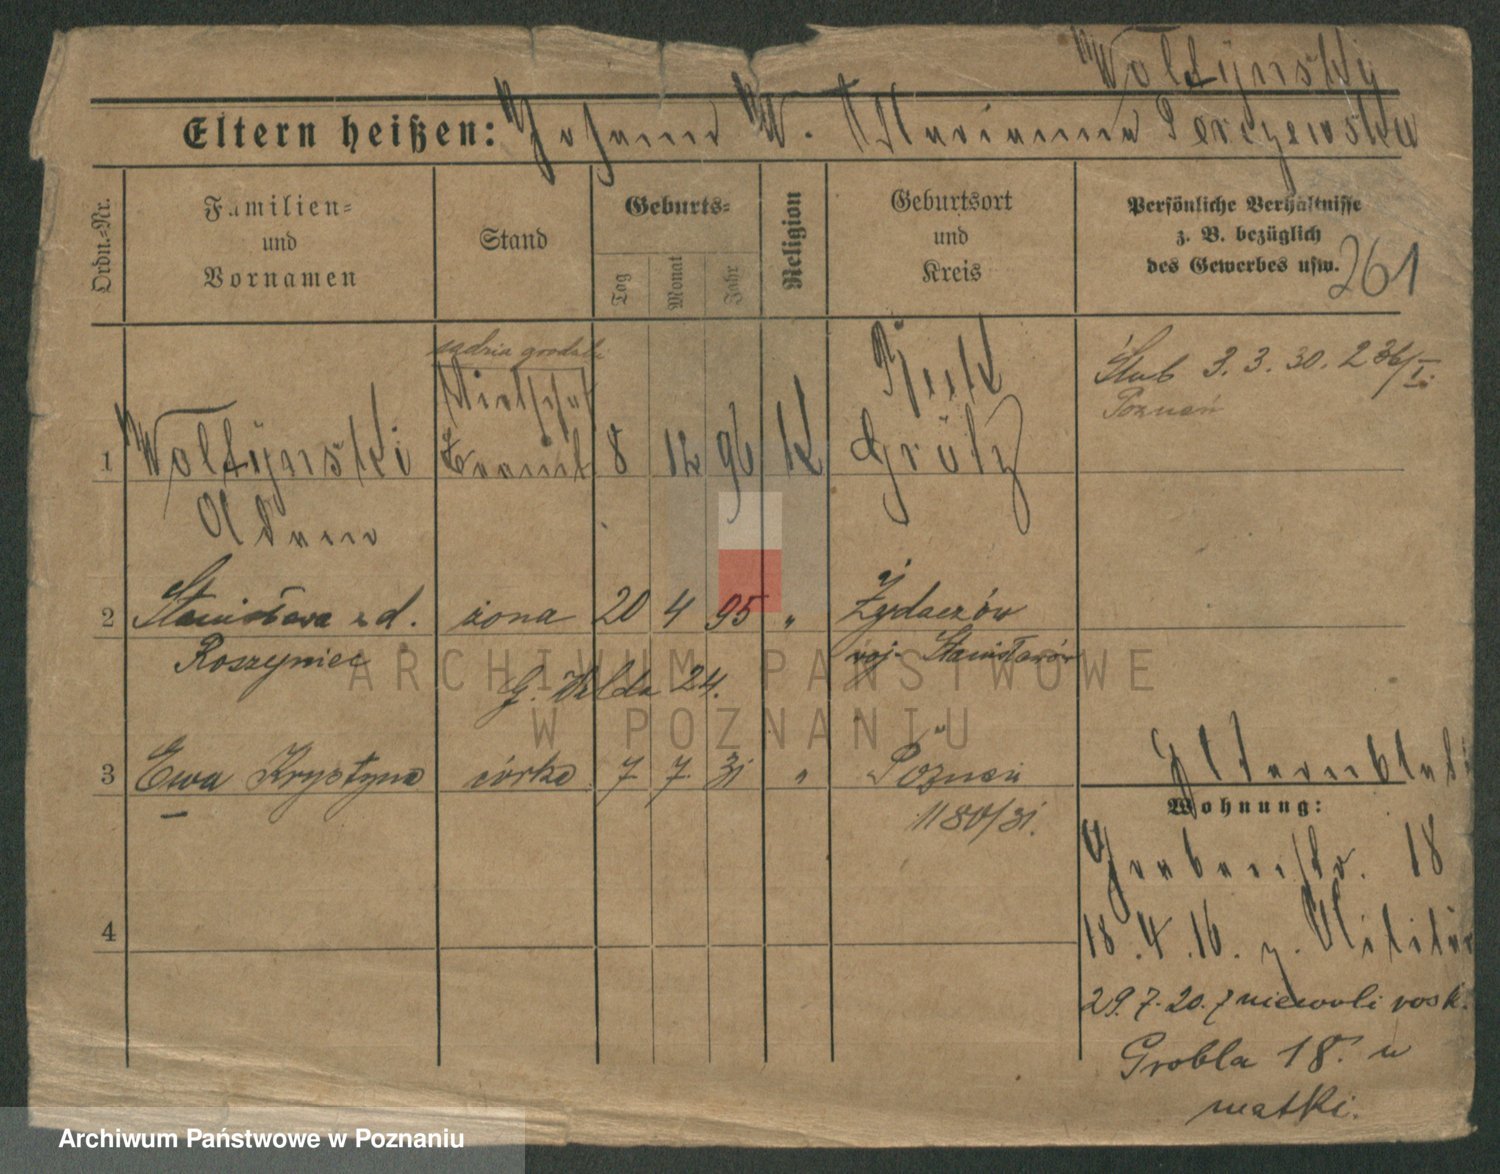 Wołÿnsky
Eltern heißen: Johann W. Marianna
Ordn.-Nr.
Familien-
und
Vornamen
Stand
Geburts-
Tag
Monat
Jahr
Religion
Geburtsort
und
Kreis
Persönliche Verhältnisse
z. B. bezüglich
des Gewerbes usw.
261
Ślub 3. 3. 30. 236/I.
Poznań
1 Wołÿnski 8 12 96 K Grätz
Adam
2 Stanisława z d. żona 20 4 95 " Żydaczów
Roszyniec woj. Stanisławów
G. Wilda 24.
3 Ewa Krystyna córka 7 7 31 " Poznań
1180/31.
Wohnung:
Grabenstr. 18
4
18.4.16. z. Militär
29.7.20. z niewoli rosk.
Grobla 18. u
matki.
ARCHIWUM PAŃSTWOWE
W POZNANIU
Archiwum Państwowe w Poznaniu